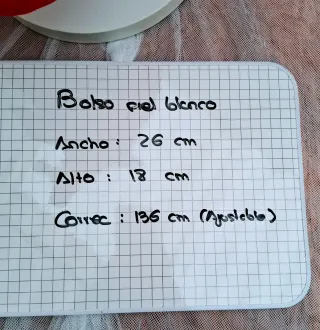 Bolso piel blanco
Ancho : 26 cm
Alto : 18 cm
Correc : 136 cm (Ajustable)